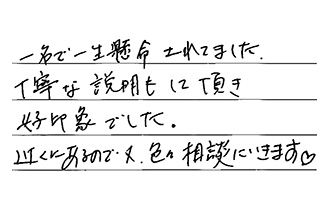 一名で一生懸命されてました.
丁寧な説明もに頂き
好印象でした。
近くにあるので又、色々相談にいきます♡